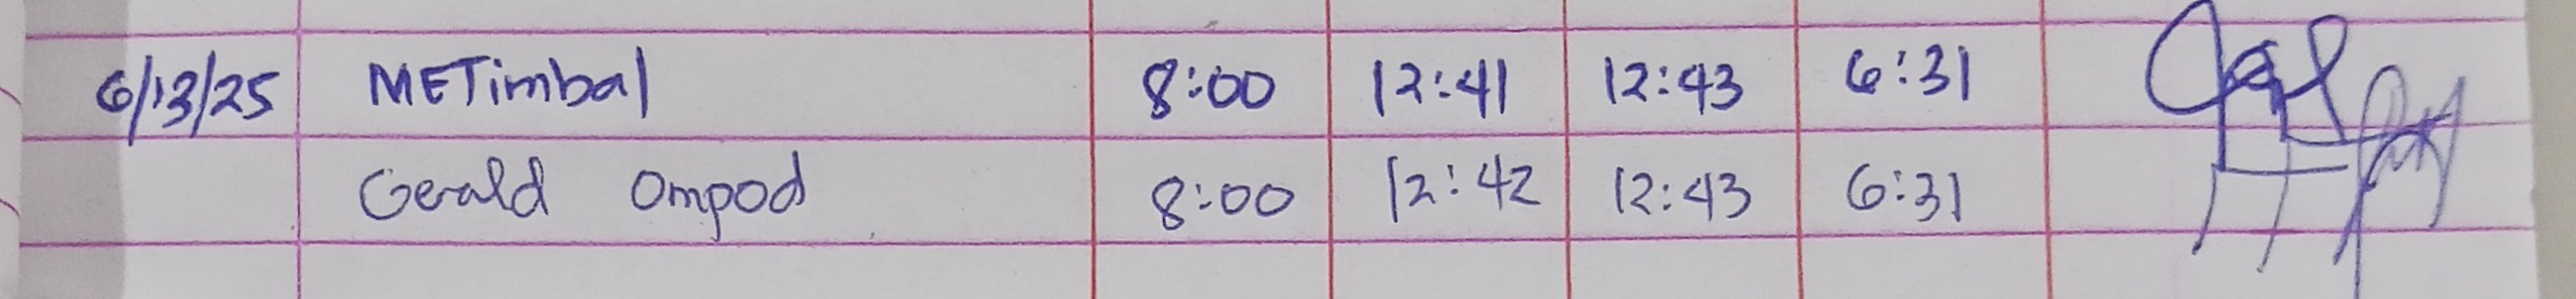 6/13/25 METimbal 8:00 12:41 12:43 6:31
Gerald Ompod 8:00 12:42 12:43 6:31